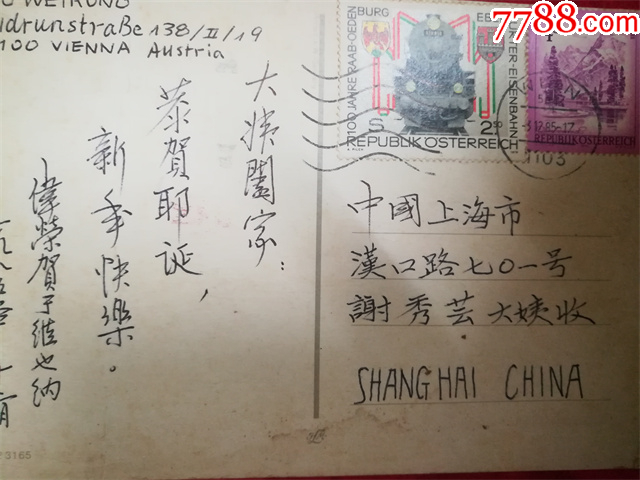 WEIRONG
drunstraße 138/II/19
100 VIENNA Austria
大姨闔家：
恭賀耶誕，
新年快樂。
偉榮賀于維也納
中國上海市
漢口路七〇一号
謝秀芸大姨收
SHANGHAI CHINA
100 JAHRE RAAB-OEDENBURG-EBENFURTER-EISENBAHN
S 2.50
REPUBLIK ÖSTERREICH
REPUBLIK ÖSTERREICH
1103
3165
7788.com